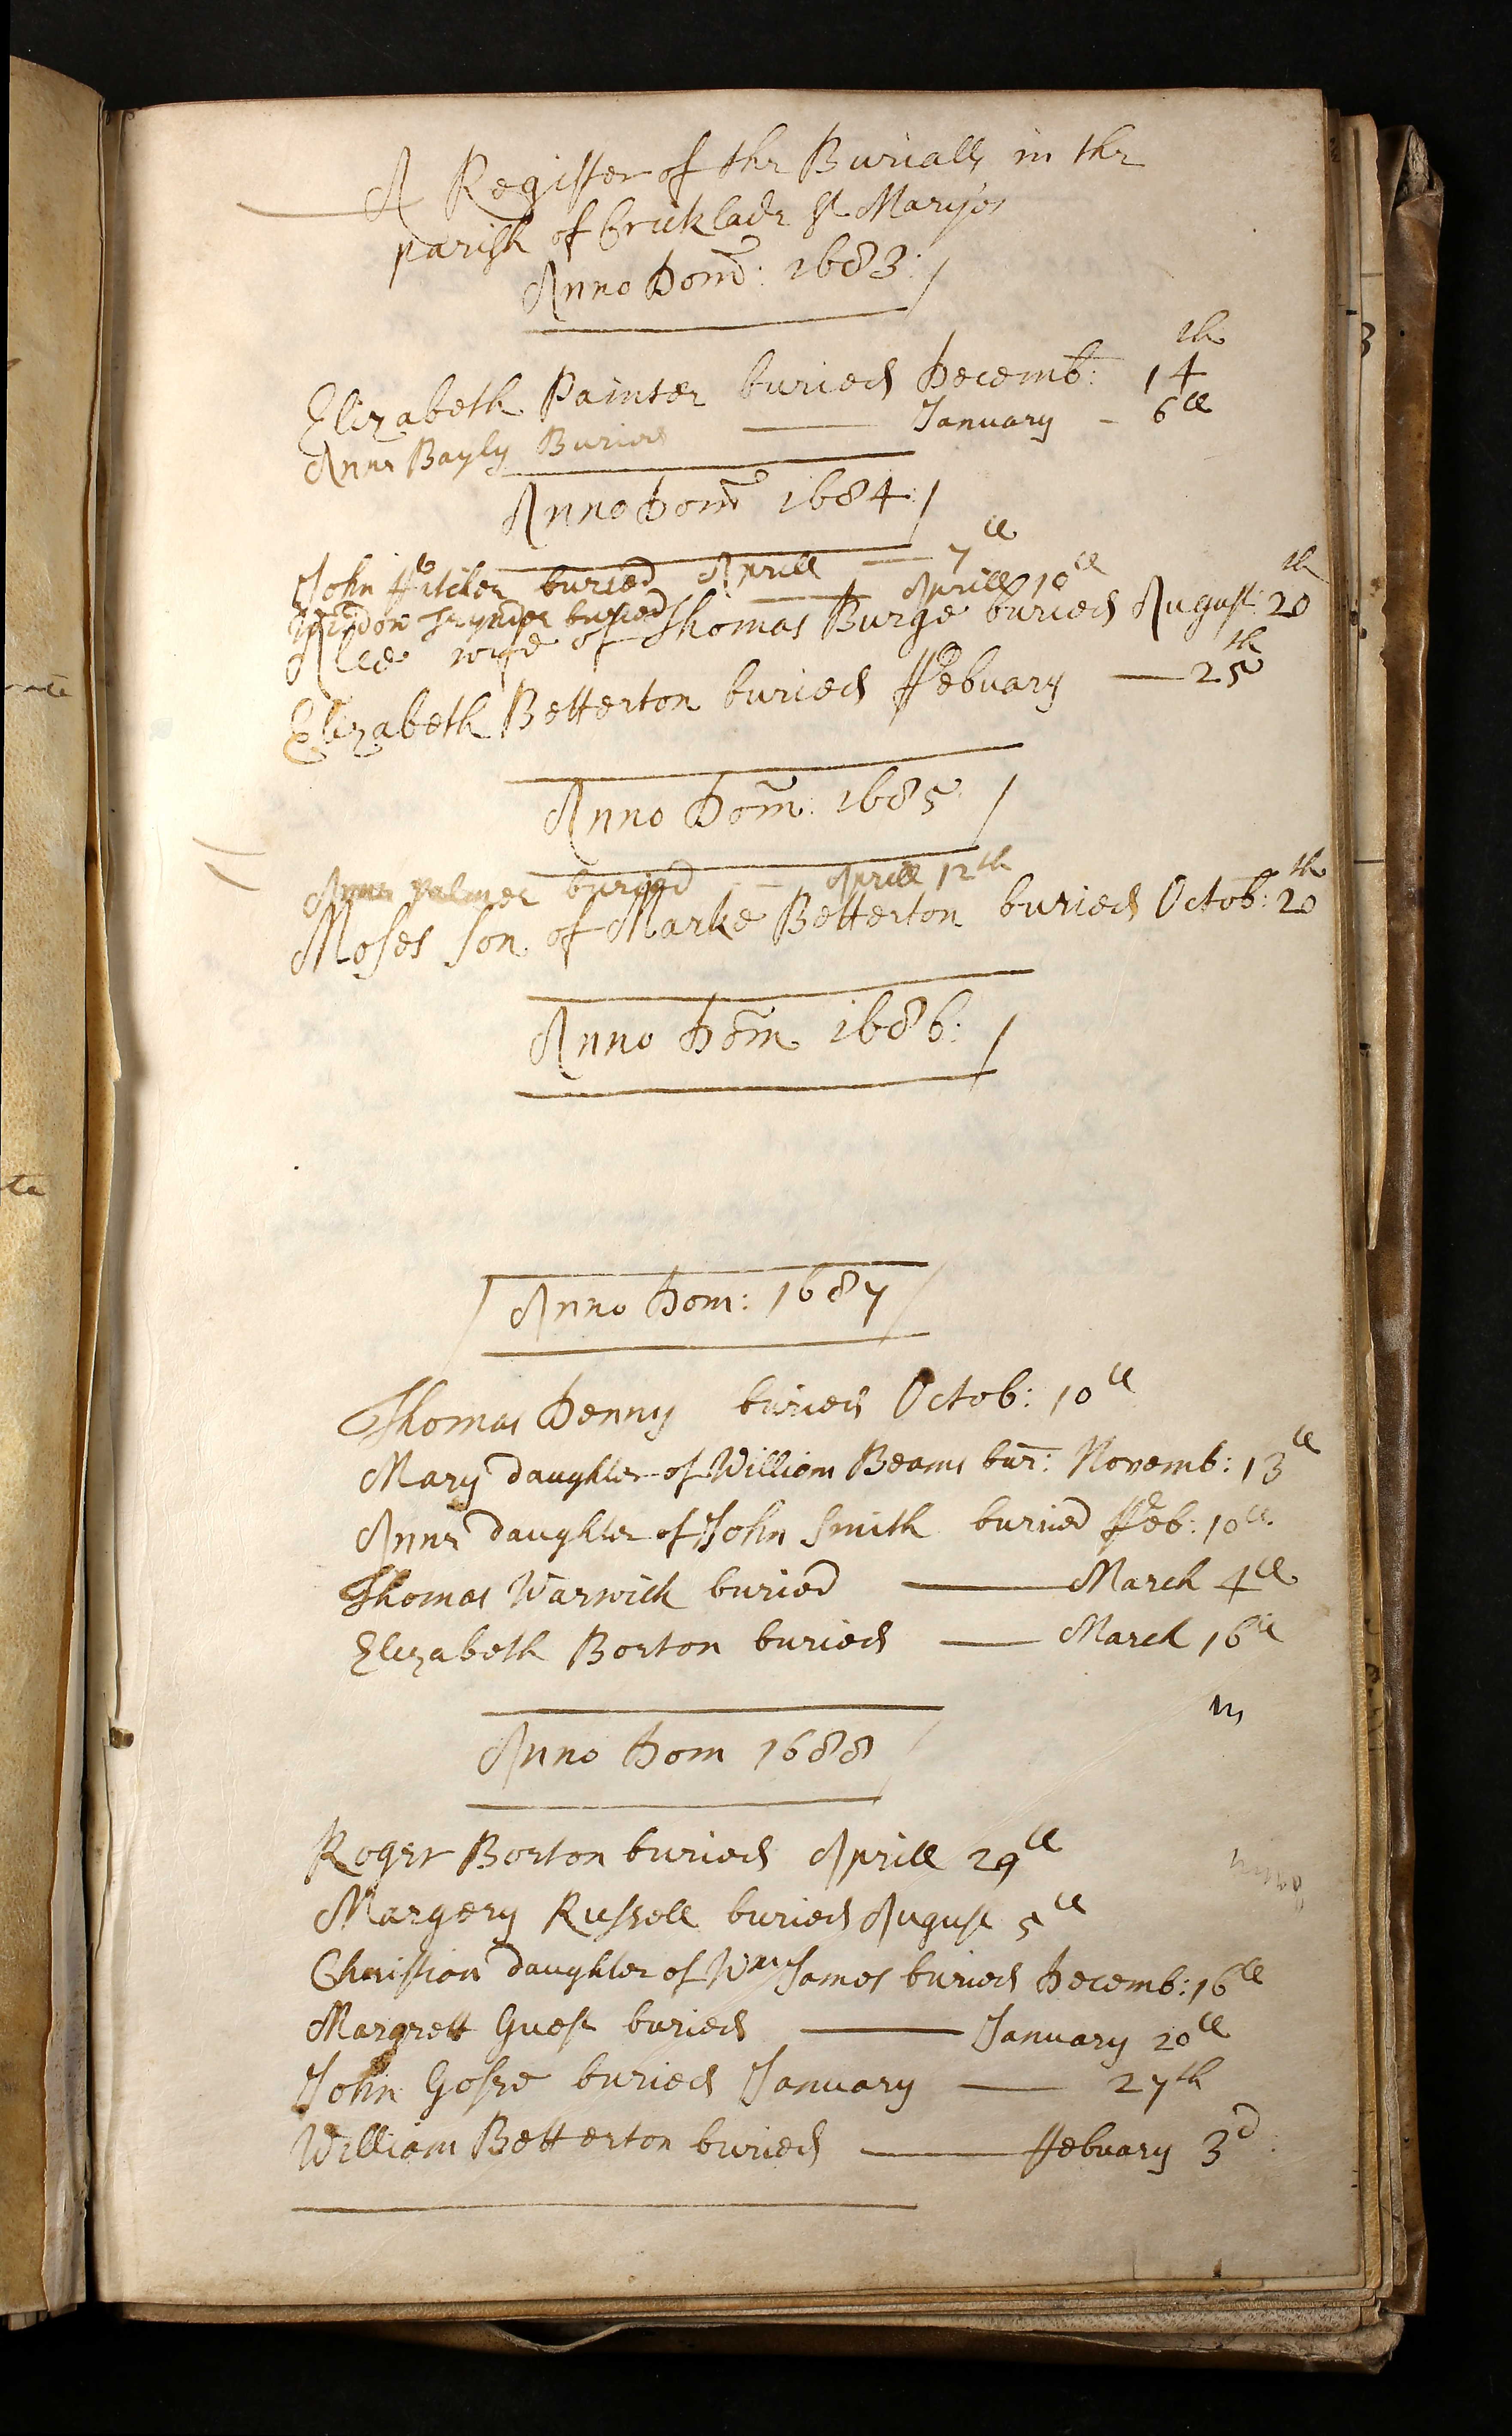 A Register of the Burialls in the
parish of Cricklade St Maryes
Anno Dom̃: 1683:/
Elizabeth Painter buried Decemb: 14th
Anne Bayly Buried — January - 6th
Anno Dom̃ 1684:/
John buried Aprill — 7th
buried — Aprill 10th
Alce wife of Thomas Burge buried August: 20th
Elizabeth Betterton buried Ffebuary — 25th
Anno Dom̃: 1685 /
Anne Palmer buried — Aprill 12th
Moses son of Marke Betterton buried Octob: 20th
Anno Dom̃ 1686: /
Anno Dom: 1687
Thomas Denny buried Octob: 10th
Mary daughter of William Beams bur: Novemb: 13th
Anne daughter of John Smith buried Ffeb: 10th
Thomas Warwick buried — March 4th
Elizabeth Borton buried — March 16th
Anno Dom 1688
Roger Borton buried Aprill 29th
Margery Russell buried August 5th
Christian daughter of Wm James buried Decemb: 16th
Margrett Guest buried — January 20th
John Gosse buried January — 27th
William Betterton buried — Ffebuary 3d